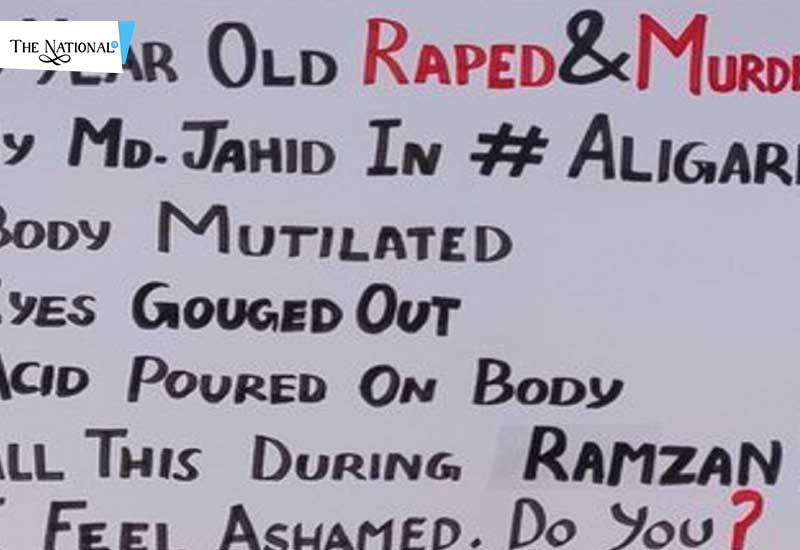 THE NATIONAL
YEAR OLD RAPED & MURDE
Y MD. JAHID IN # ALIGAR
BODY MUTILATED
EYES GOUGED OUT
ACID POURED ON BODY
ALL THIS DURING RAMZAN
I FEEL ASHAMED. DO YOU?